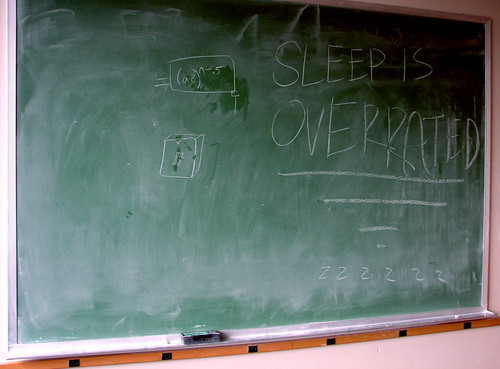 SLEEP IS
OVERRATED
z z z z z z